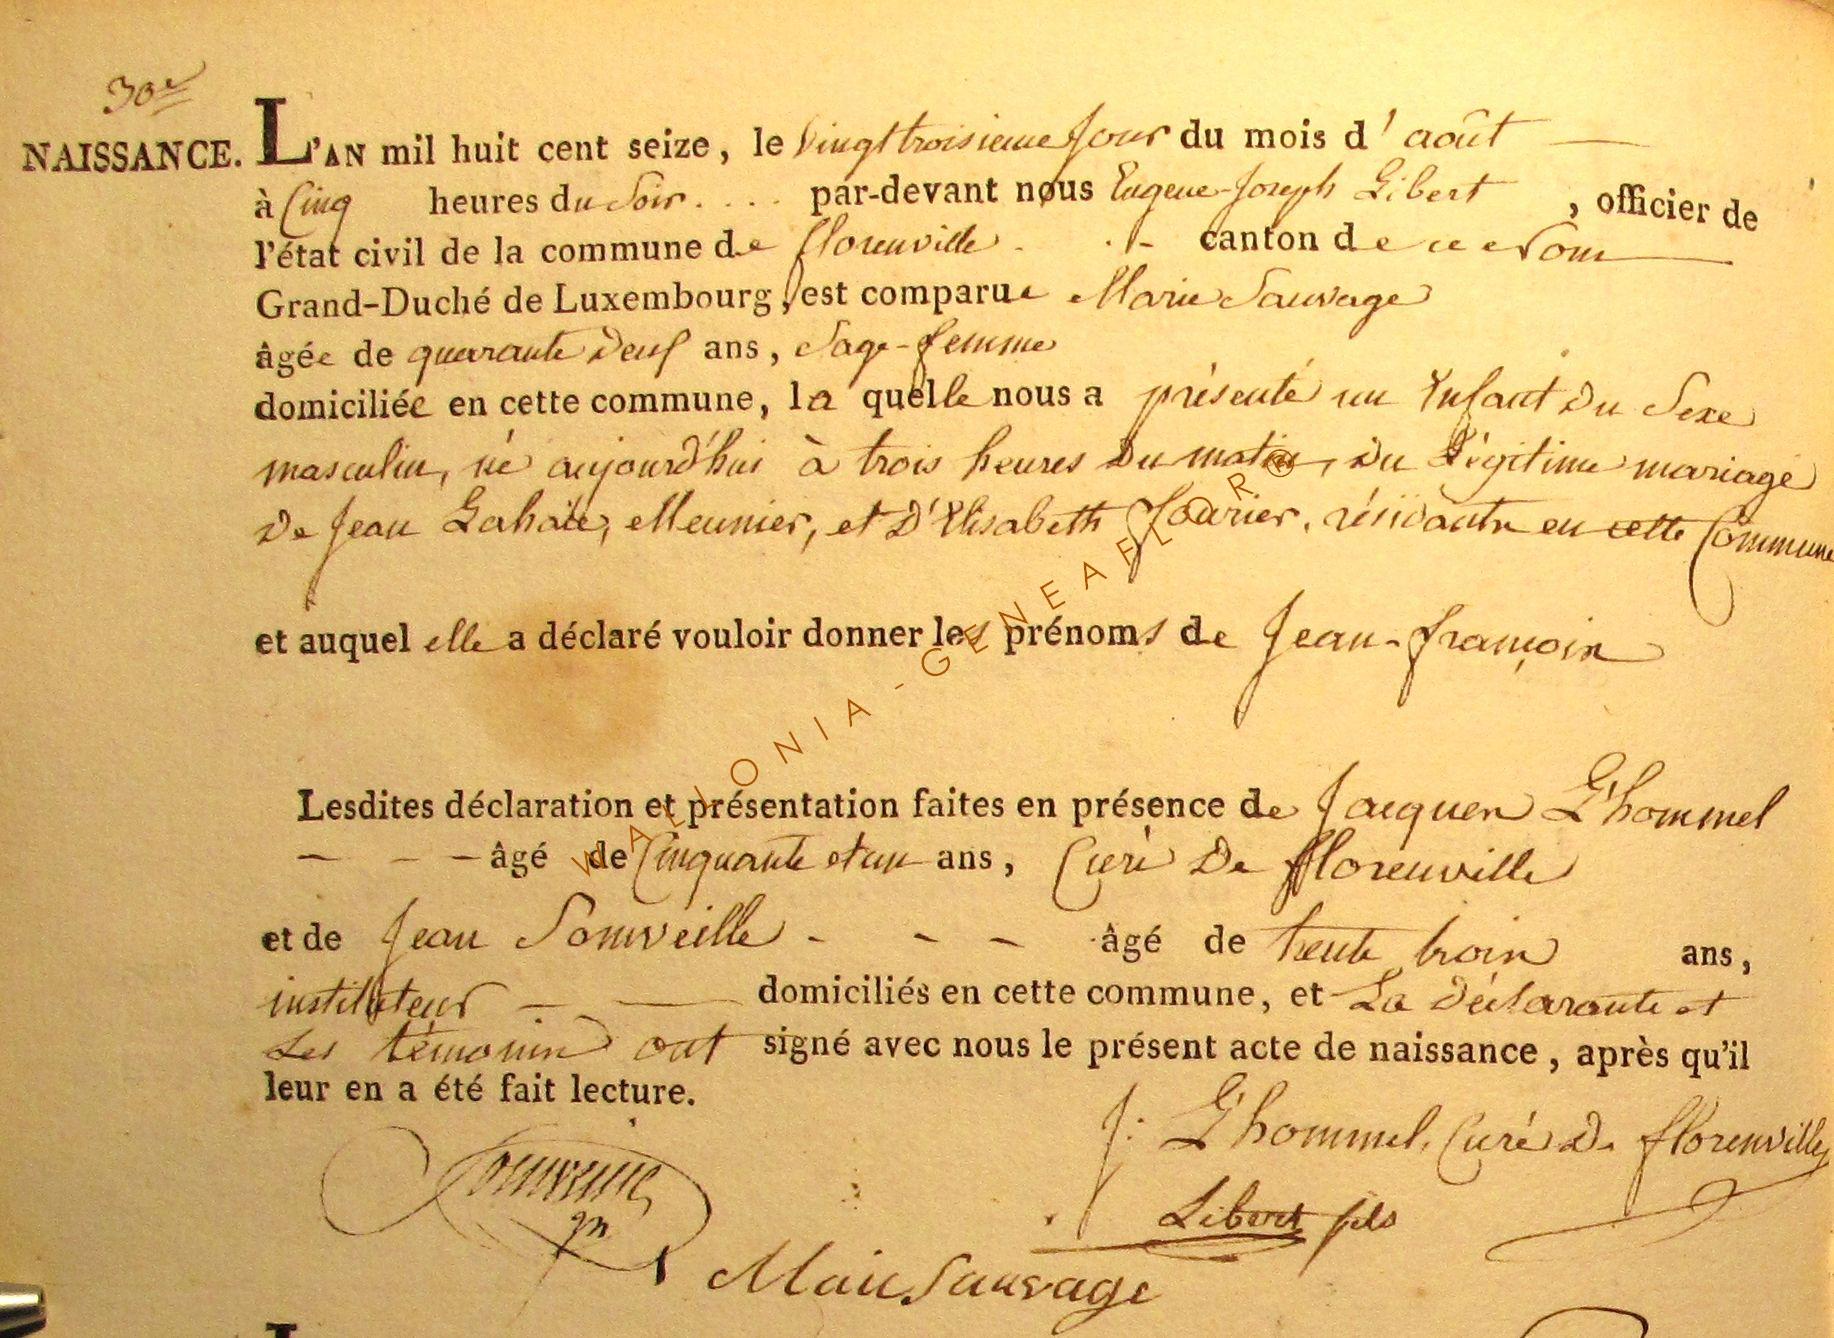 30e
NAISSANCE. L'AN mil huit cent seize, le vingt troisieme jour du mois d'août
à Cinq heures du soir .... par-devant nous Eugene-Joseph Libert, officier de
l'état civil de la commune de florenville canton de ce nom
Grand-Duché de Luxembourg, est comparue Marie Sauvage
âgée de quarante deux ans, Sage-femme
domiciliée en cette commune, la quelle nous a présenté un Enfant du Sexe
masculin, né aujourd'hui à trois heures du matin, du légitime mariage
de Jean Lahaïe, Meunier, et d'Elisabeth résidante en cette Commune
et auquel elle a déclaré vouloir donner les prénoms de Jean-françois
Lesdites déclaration et présentation faites en présence de Jacques L'hommel
- - - âgé de Cinquante et un ans, Curé de florenville
et de Jean Somveille - - - âgé de trente trois ans,
instituteur - — domiciliés en cette commune, et La déclarante et
Les témoins ont signé avec nous le présent acte de naissance, après qu'il
leur en a été fait lecture.
J: L'hommel, Curé de florenville
Somveille
Libert fils
Marie Sauvage
WALLONIA-GENEAFLOR®